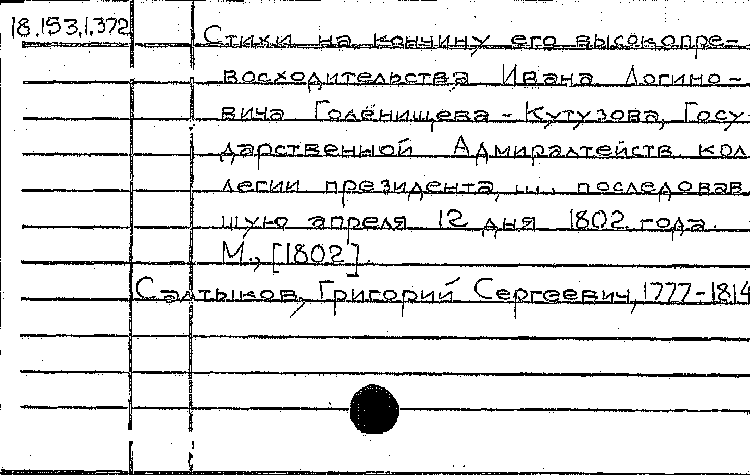 18.153.1.372
Стихи на кончину его высокопре-
восходительства Ивана Логино-
вича Голенищева-Кутузова, Госу
дарственной Адмиралтейств кол
легии президента, ... последовав
шую апреля 12 дня 1802 года.
М., [1802].
Салтыков, Григорий Сергеевич, 1777-1814